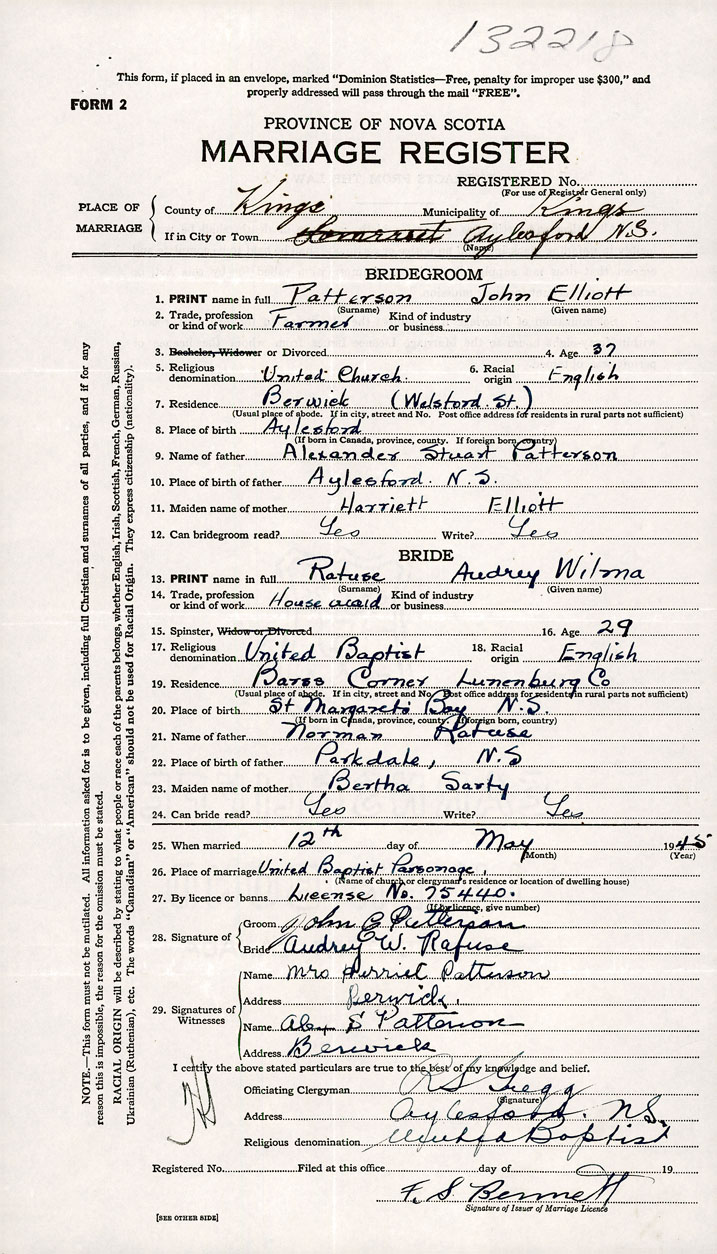 132218
This form, if placed in an envelope, marked "Dominion Statistics—Free, penalty for improper use $300," and
properly addressed will pass through the mail "FREE".
FORM 2
PROVINCE OF NOVA SCOTIA
MARRIAGE REGISTER
REGISTERED No.
(For use of Registrar General only)
PLACE OF MARRIAGE
County of Kings Municipality of Kings
If in City or Town Somerset Aylesford N.S.
(Name)
BRIDEGROOM
1. PRINT name in full Patterson John Elliott
(Surname) (Given name)
2. Trade, profession or kind of work Farmer Kind of industry or business
3. Bachelor, Widower or Divorced 4. Age 37
5. Religious denomination United Church. 6. Racial origin English
7. Residence Berwick (Welsford St.)
(Usual place of abode. If in city, street and No. Post office address for residents in rural parts not sufficient)
8. Place of birth Aylesford
(If born in Canada, province, county. If foreign born, country)
9. Name of father Alexander Stuart Patterson
10. Place of birth of father Aylesford. N.S.
11. Maiden name of mother Harriett Elliott
12. Can bridegroom read? Yes Write? Yes
BRIDE
13. PRINT name in full Rafuse Audrey Wilma
(Surname) (Given name)
14. Trade, profession or kind of work House maid Kind of industry or business
15. Spinster, Widow or Divorced 16. Age 29
17. Religious denomination United Baptist 18. Racial origin English
19. Residence Barss Corner Lunenburg Co
(Usual place of abode. If in city, street and No. Post office address for residents in rural parts not sufficient)
20. Place of birth St Margarets Bay N.S.
(If born in Canada, province, county. If foreign born, country)
21. Name of father Norman Rafuse
22. Place of birth of father Parkdale, N.S
23. Maiden name of mother Bertha Sarty
24. Can bride read? Yes Write? Yes
25. When married 12th day of May 1945
(Month) (Year)
26. Place of marriage United Baptist Parsonage.
(Name of church or clergyman's residence or location of dwelling house)
27. By licence or banns License No. 75440.
(If by licence, give number)
28. Signature of
Groom John E Patterson
Bride Audrey W. Rafuse
29. Signatures of Witnesses
Name Mrs Harriet Patterson
Address Berwick.
Name Alex S Patterson
Address Berwick
I certify the above stated particulars are true to the best of my knowledge and belief.
Officiating Clergyman R S Gregg
(Signature)
Address Aylesford. N.S.
Religious denomination United Baptist
Registered No. Filed at this office day of 19
F. S. Bennett
Signature of Issuer of Marriage Licence
[SEE OTHER SIDE]
NOTE.—This form must not be mutilated. All information asked for is to be given, including full Christian and surnames of all parties, and if for any
reason this is impossible, the reason for the omission must be stated.
RACIAL ORIGIN will be described by stating to what people or race each of the parents belongs, whether English, Irish, Scottish, French, German, Russian,
Ukrainian (Ruthenian), etc. The words "Canadian" or "American" should not be used for Racial Origin. They express citizenship (nationality).